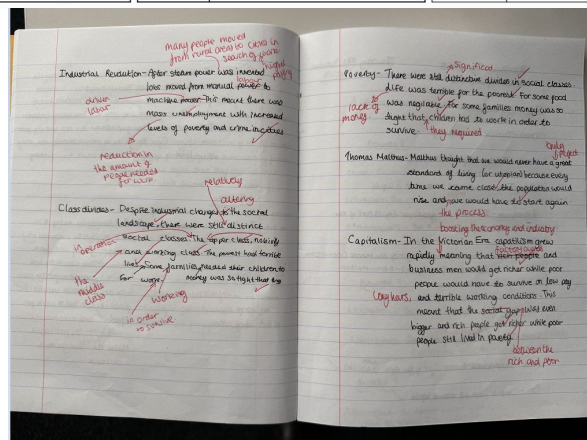 many people moved
from rural areas to cities in
search of work
higher
paying
Industrial Revolution - After steam power was invented
labour
jobs moved from manual power to
driven
labor
machine power. This meant there was
mass unemployment with increased
levels of poverty and crime in cities
reduction in
the amount of
people needed
for work
relatively
altering
Class divides - Despite industrial changes to the social
landscape, there were still distinct
social classes. The upper class, nobility
in operation
and working class. The poorest had terrible
lives. Some families needed their children to
for work. money was so tight that
the
middle
class
working
in order
to survive
Significant
Poverty - There were still distinctive divides in social classes.
Life was terrible for the poorest. For some food
was negligible. For some families money was so
lack of
money
tight that children had to work in order to
survive
they required
truly
perfect
Thomas Malthus - Malthus thought that we would never have a great
standard of living (or utopian) because every
time we came close, the population would
rise and we would have to start again
the process
boosting the economy and industry
Capitalism - In the Victorian Era capitalism grew
factory owners
rapidly meaning that rich people and
business men would get richer while poor
people would have to survive on low pay
long hours,
and terrible working conditions. This
meant that the social gap was even
bigger and rich people got richer while poor
people still lived in poverty
between the
rich and poor